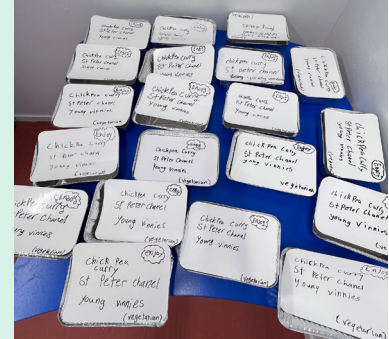 Chickpea curry
St Peter Chanel
Young Vinnies
Enjoy
Chickpea curry
St Peter Chanel
Enjoy
Enjoy
Chickpea curry
St Peter Chanel
Young Vinnies
Enjoy
Chickpea curry
St Peter Chanel
Enjoy
Chickpea curry
St Peter Chanel
Young Vinnies
(vegetarian)
Enjoy
Chickpea curry
St Peter Chanel
Young Vinnies
Enjoy
curry
St Peter Chanel
Young Vinnies
(vegetarian)
Enjoy
Chickpea curry
St Peter Chanel
Young Vinnies
(vegetarian)
Enjoy
Chickpea curry
St Peter Chanel
Young Vinnies
(vegetarian)
Enjoy
Chick Pea curry
St Peter Chanel
Young Vinnies
vegetarian
Enjoy
Chick Pea curry
St Peter Chanel
Young Vinnies
Enjoy
Chick Pea curry
St Peter Chanel
Young Vinnies
Enjoy
Pea curry
St Peter Chanel
Young Vinnies
(vegetarian)
Enjoy
Chickpea curry
St Peter Chanel
Young Vinnies
(vegetarian)
Enjoy
Chickpea curry
St Peter Chanel
Young Vinnies
(vegetarian)
Enjoy
Chick Pea
curry
St Peter Chanel
Young Vinnies
(vegetarian)
Enjoy
Chick Pea curry
St Peter Chanel
Young Vinnies
(vegetarian)
Enjoy